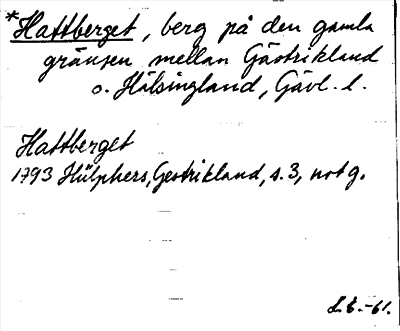 *Hattberget, berg på den gamla
gränsen mellan Gästrikland
o. Hälsingland, Gävl. l.
Hattberget
1793 Hülphers, Gestrikland, s. 3, not g.
L. E. -61.